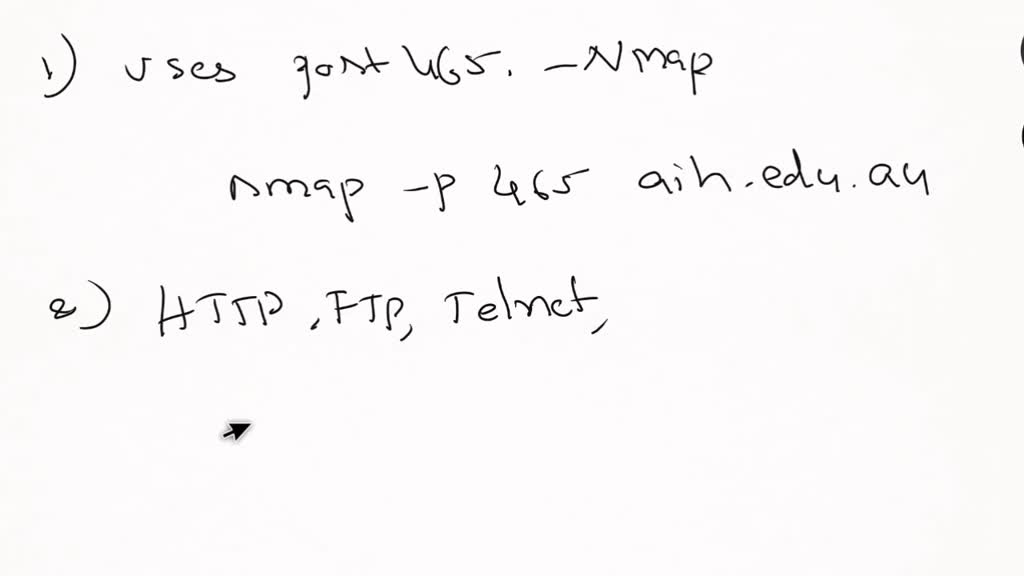 1) uses port 465. - Nmap
nmap -p 465 aih.edu.au
2) HTTP, FTP, Telnet,